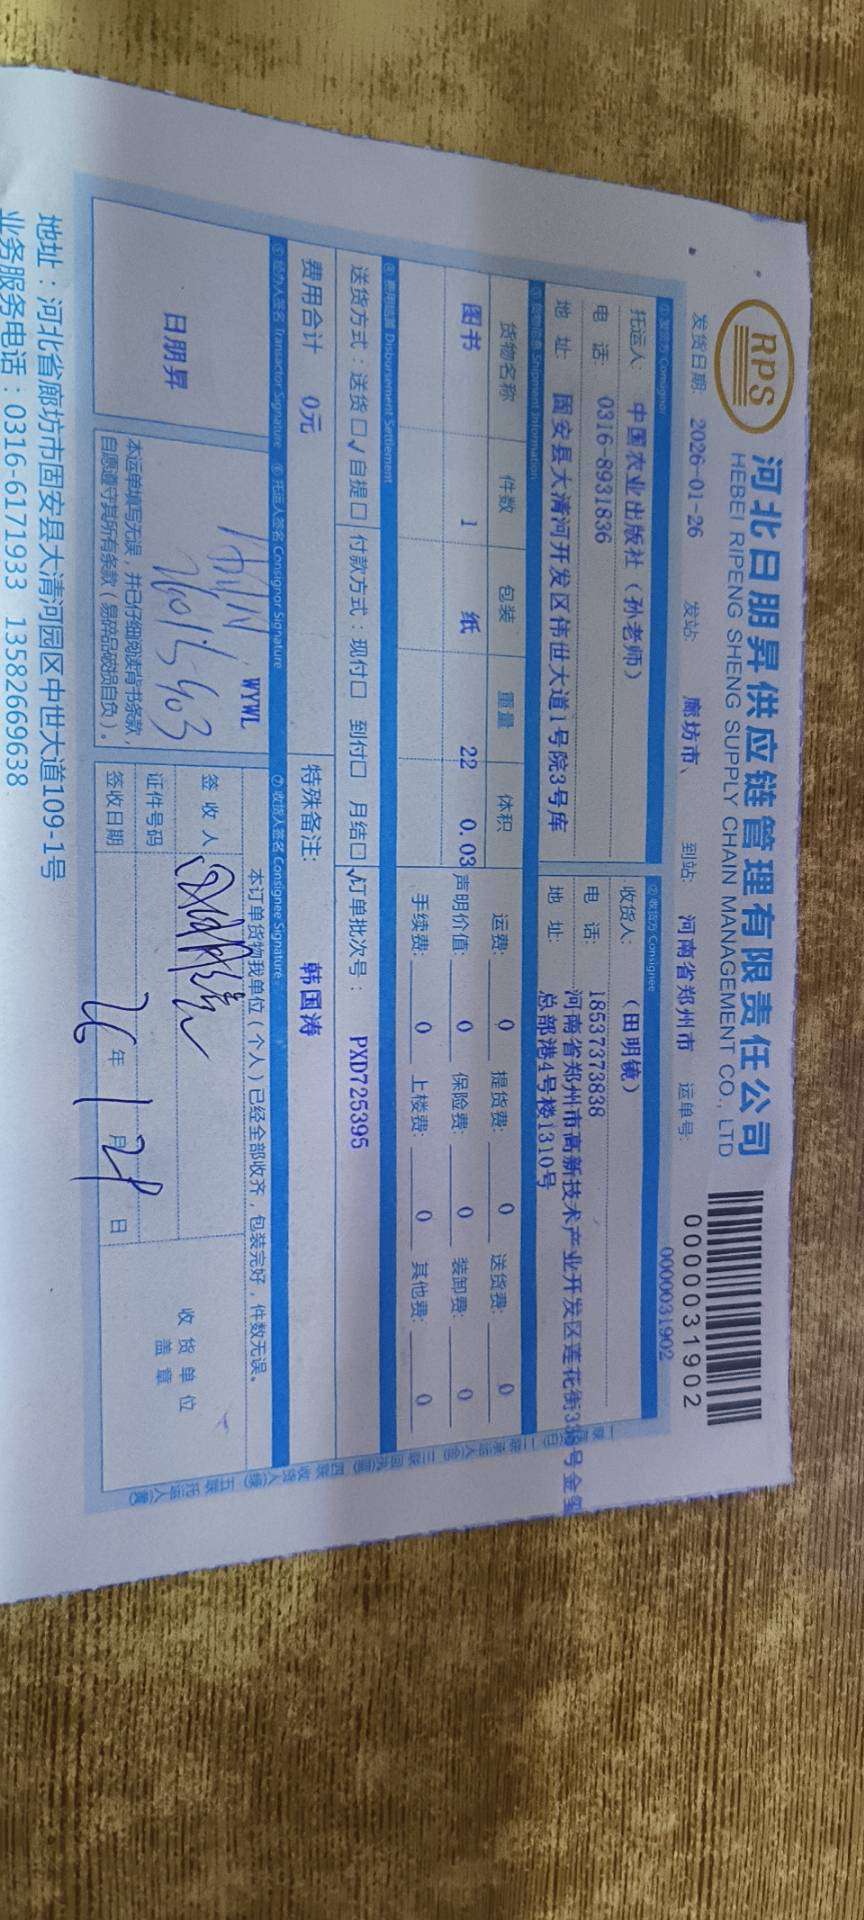 RPS
河北日朋昇供应链管理有限责任公司
HEBEI RIPENG SHENG SUPPLY CHAIN MANAGEMENT CO., LTD
0000031902
发货日期: 2026-01-26 发站: 廊坊市、 到站: 河南省郑州市 运单号: 0000031902
①发货方 Consignor ②收货方 Consignee
托运人: 中国农业出版社（孙老师） 收货人: （田明镜）
电 话: 0316-8931836 电 话: 18537373838
地 址: 固安县大清河开发区伟世大道1号院3号库 地 址: 河南省郑州市高新技术产业开发区莲花街338号金玺
总部港4号楼1310号
③货物信息 Shipment Information
货物名称 件数 包装 重量 体积 运费: 0 提货费: 0 送货费: 0
图书 1 纸 22 0.03 声明价值: 0 保险费: 0 装卸费: 0
手续费: 0 上楼费: 0 其他费: 0
④费用结算 Disbursement Settlement
送货方式：送货□✓自提□ 付款方式：现付□ 到付□ 月结□✓ 订单批次号： PXD725395
费用合计 0元 特殊备注: 韩国涛
⑤经办人签名 Transactor Signature ⑥托运人签名 Consignor Signature ⑦收货人签名 Consignee Signature
日朋昇
WYWL
本运单填写无误，并已仔细阅读背书条款，
自愿遵守其所有条款（易碎品破损自负）。
本订单货物我单位（个人）已经全部收齐，包装完好，件数无误。
签 收 人
证件号码
签收日期 26年 1月 29日
收货单位
盖章
地址：河北省廊坊市固安县大清河园区中世大道109-1号
业务服务电话：0316-6171933 13582669638